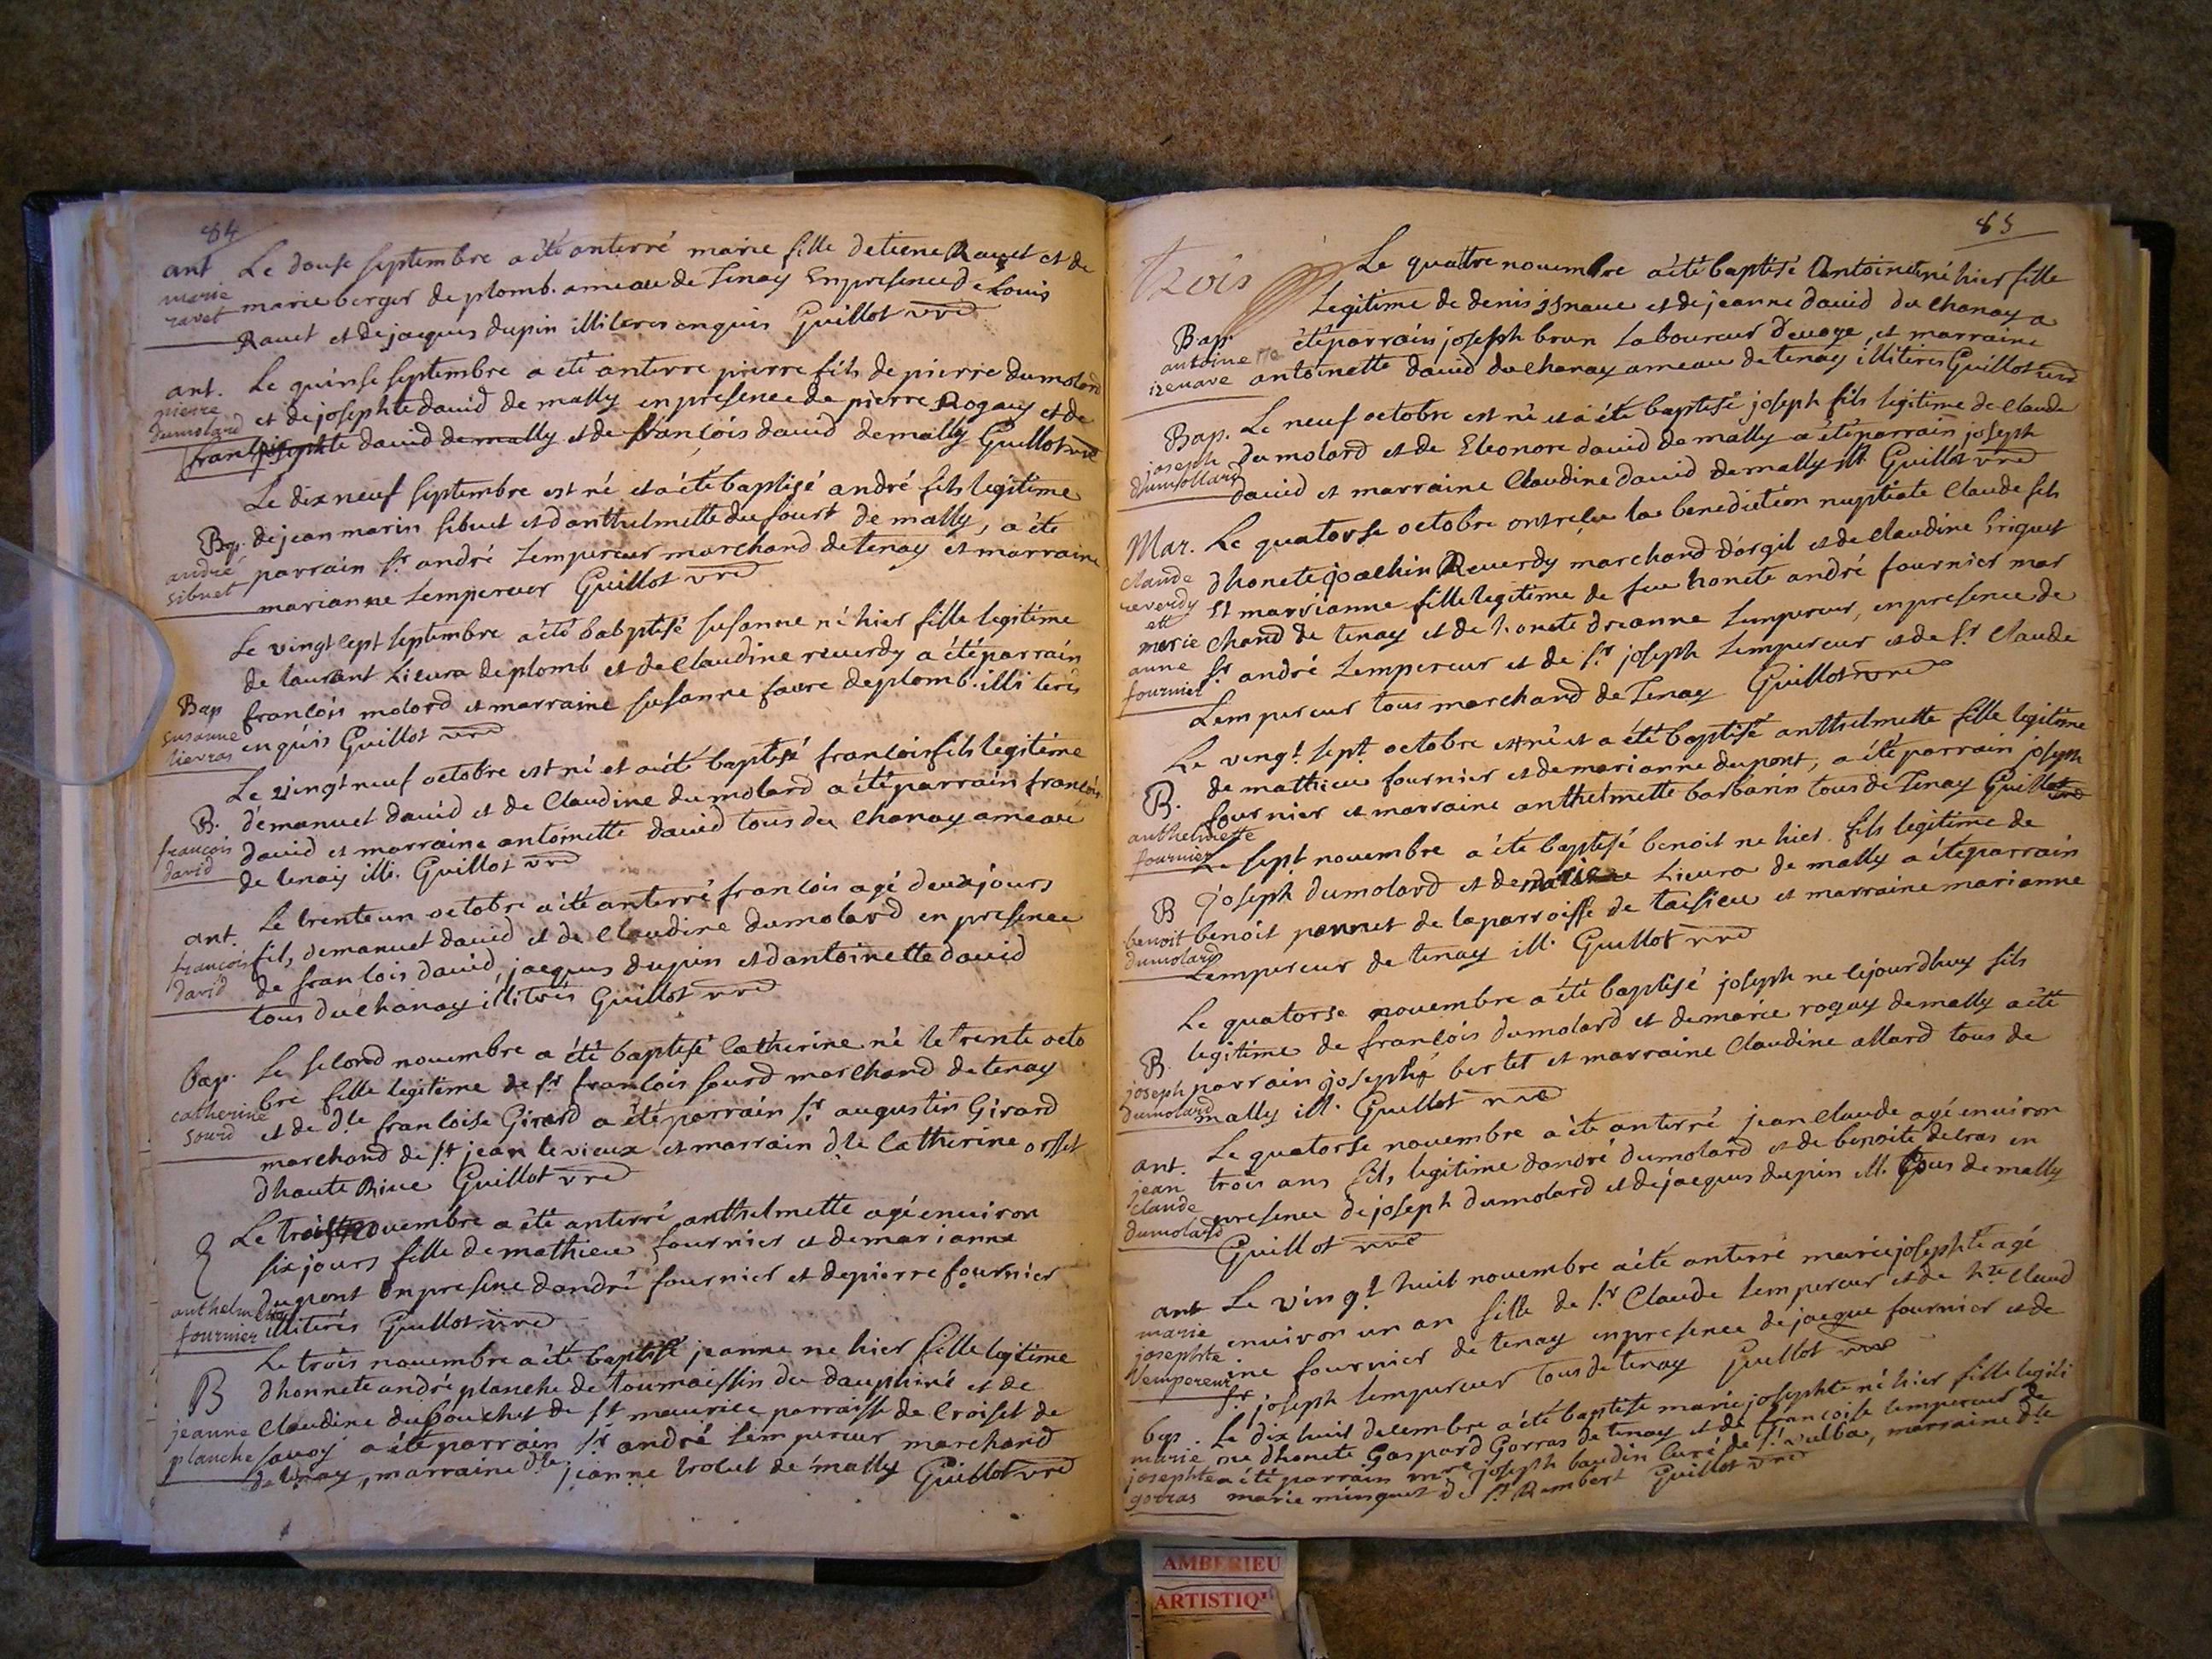 84
ant Le douse septembre a été anterré marie fille detiene Ravet et de
marie ravet marie berger de plomb. ameau de Tenay Enpresence de Louis
Ravet et de jaques dupin illiteres enquis Guillot vre
ant. Le quinse septembre a été anterre pierre fils de pierre dumolard
pierre dumolard et de josephte david de mally enpresence de pierre Rogay et de
david de mally et de françois david de mally Guillot vre
Le dixneuf septembre est né et a été baptisé andré fils legitime
Bap. de jean marin sibuet et danthelmette dufour de mally, a été
andré sibuet parrain Sr. andré Lempereur marchand de tenay et marraine
marianne Lempereur Guillot vre
Le vingt sept septembre a été babptisé susanne né hier fille legitime
de laurant Lievra de plomb et de Claudine reverdy a été parrain
Bap susanne lievras françois molard et marraine susanne favre de plomb. illi terés
enquis Guillot vre
Le vingt neuf octobre est né et a été baptisé françois fils legitime
B. démanuel david et de Claudine dumolard a été parrain françois
françois david david et marraine antoinette david tous du Chanay ameau
de tenay illi. Guillot vre
ant. Le trente un octobre a été anterré françois agé deux jours
françois david fils demanuel david et de Claudine dumolard en presence
de françois david, jaques dupin et dantoinette david
tous du chanay illiterés Guillot vre
bap. Le second novembre a été baptisé Catherine né le trente octo
catherine sourd bre fille legitime de Sr. françois sourd marchand de tenay
et de dle françoise Girard a été parrain Sr. augustin Girard
marchand de St jean le vieux et marrain dle Catherine orset
dhaute Rive Guillot vre
Le trois novembre a été anterré anthelmette agé environ
six jours fille de mathieu fournier et de marianne
dupont Enpresene dandré fournier et de pierre fournier
anthelmette fournier illiterés Guillot vre
Le trois novembre a été baptisé jeanne né hier fille legitime
B dhonnete andré planche de toumaissin du dauphiné et de
jeanne planche Claudine de St maurice parroisse de Croiset de
savoy a été parrain Sr. andré Lempereur marchand
de tenay, marraine dle jeanne trolut de mally Guillot vre
85
trois Le quattre novembre a été baptisé Antoinete né hier fille
Legitime de denis isnave et de jeanne david du Chanay a
Bap. antoinette izenave été parrain joseph brun Laboureur devoge, et marraine
antoinette david du Chanay ameau de tenay illiterés Guillot vre
Bap. Le neuf octobre est né et a été baptisé joseph fils legitime de Claude
joseph dumollard du molard et de Eleonore david de mally a été parrain joseph
david et marraine Claudine david de mally ill. Guillot vre
Mar. Le quatorse octobre ont relu la benediction nuptiale Claude fils
claude reverdy dhonete joachin Reverdy marchand dorgil et de Claudine briguet
et marie Et marrianne fille legitime de feu honete andré fournier mar
anne chand de tenay et de honete dreanne Lempereur, enpresence de
fournier Sr andré Lempereur et de Sr joseph Lempereur et de Sr Claude
Lempereur tous marchand de Tenay Guillot vre
Le vingt sept octobre est né et a été baptisé anthelmette fille legitime
B. de mathieu fournier et de marianne dupont, a été parrain joseph
anthelmette fournier fournier et marraine anthelmette barbarin tous de Tenay Guillot vre
Le sept novembre a été baptisé benoit né hier. fils legitime de
B joseph dumolard et de Lievra de mally a été parrain
benoit dumolard benoit pannet de la parroisse de taisieu et marraine marianne
Lempereur de tenay ill. Guillot vre
Le quatorse novembre a été baptisé joseph né cejourdhuy fils
B. legitime de françois dumolard et de marie rogay de mally a été
joseph dumolard parrain joseph bertet et marraine Claudine allard tous de
mally ill. Guillot vre
ant. Le quatorse novembre a été anterré jean Claude agé environ
jean claude dumolard trois ans fils legitime dandré dumolard et de benoite delras en
presence de joseph dumolard et de jacques dupin ill. tous de mally
Guillot vre
ant Le vingt huit novembre a été anterré marie josephte agé
marie josephte Lempereur environ un an fille de Sr Claude Lempereur et de hte Claud
ine fournier de tenay enpresence de jacque fournier et de
Sr joseph Lempereur tous de tenay Guillot vre
bap. Le dix huit decembre a été baptisé marie josephte né hier fille legiti
marie josephte gorras me dhonete Gaspard Gorras de tenay et de françoise Lempereur
a été parrain mre joseph baudin Curé de St vulba, marraine dle
marie minguet de St Rambert Guillot vre
AMBERIEU
ARTISTIQ